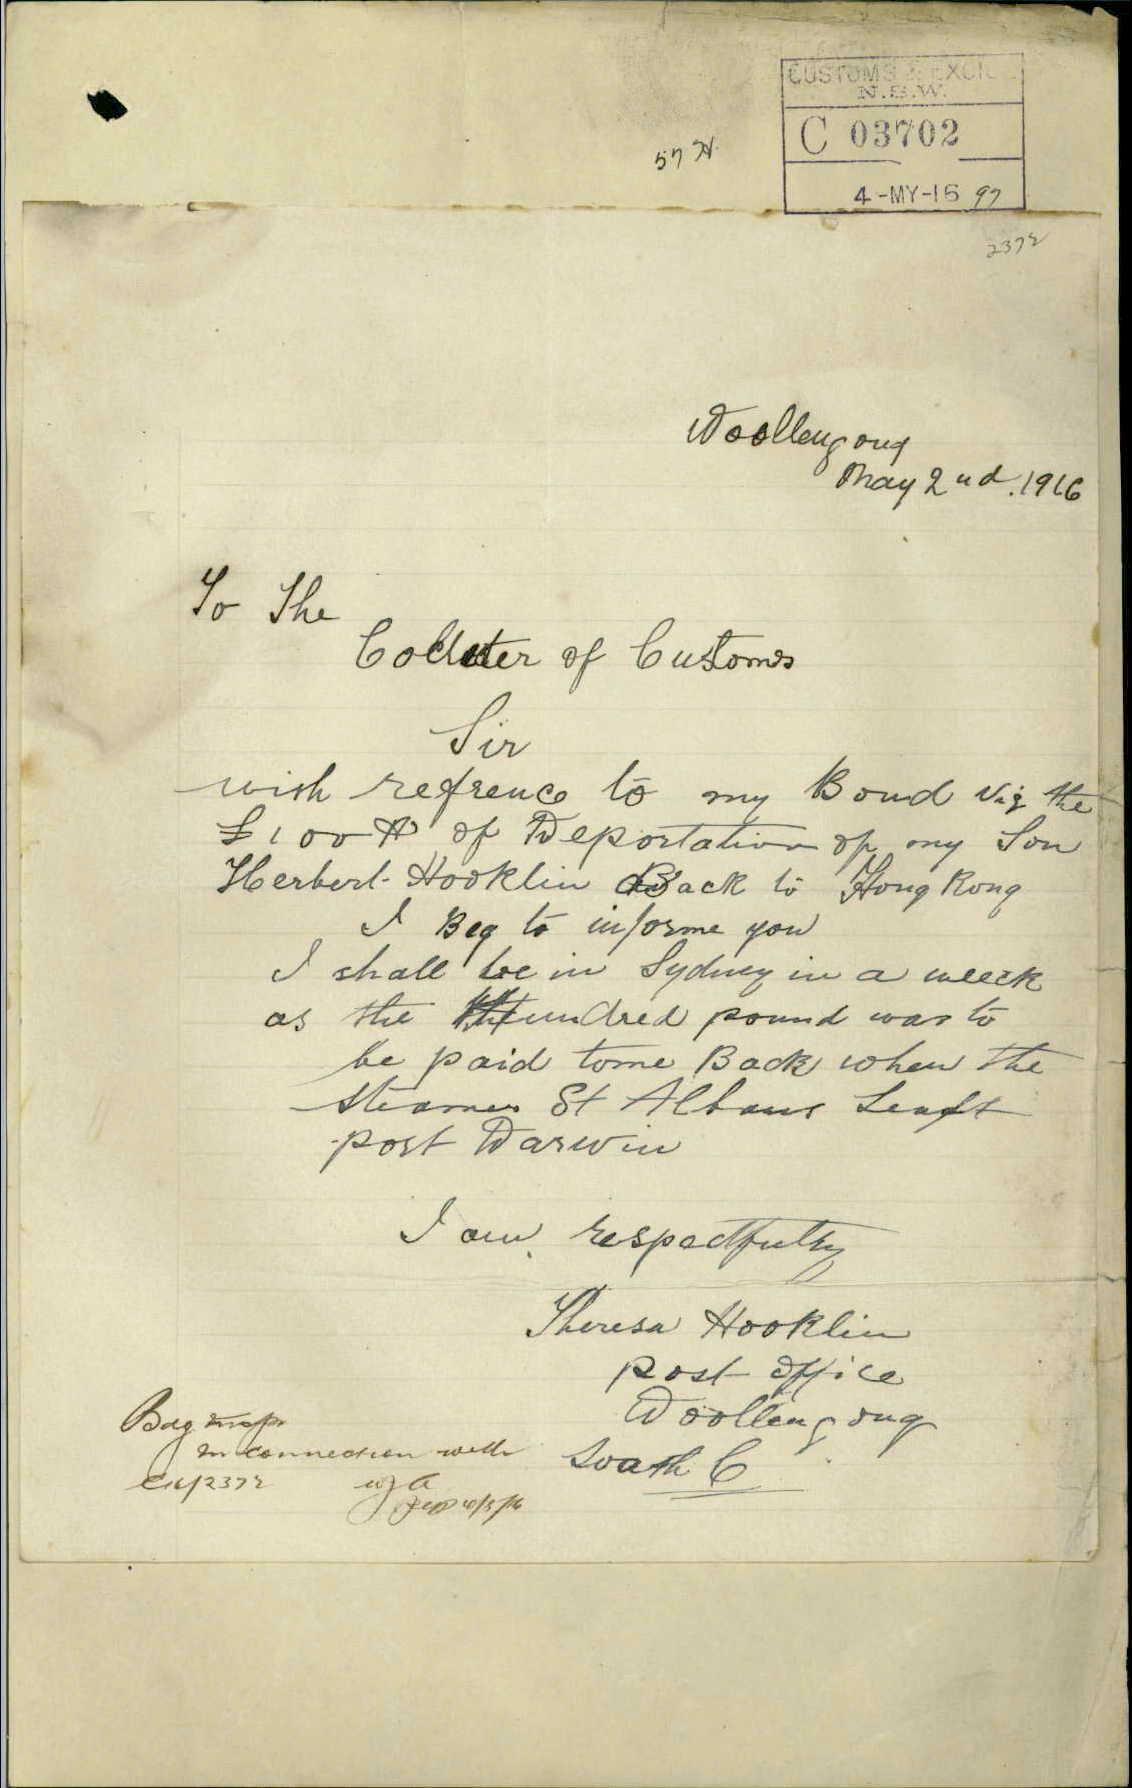 CUSTOMS & EXCISE
N.S.W.
C 03702
4-MY-16 97
57
2372
Woollengong
May 2nd. 1916
To The
Collecter of Customs
Sir
with refrence to my Bond viz the
£100 of Deportation of my Son
Herbert Hooklin Back to Hong Kong
I Beg to informe you
I shall be in Sydney in a weeck
as the Hundred pound was to
be paid tome Back when the
steamer St Albans Leaft
port Darwin
I am respectfully
Theresa Hooklin
post office
Woollengong
South C
in connection with
C16/2372